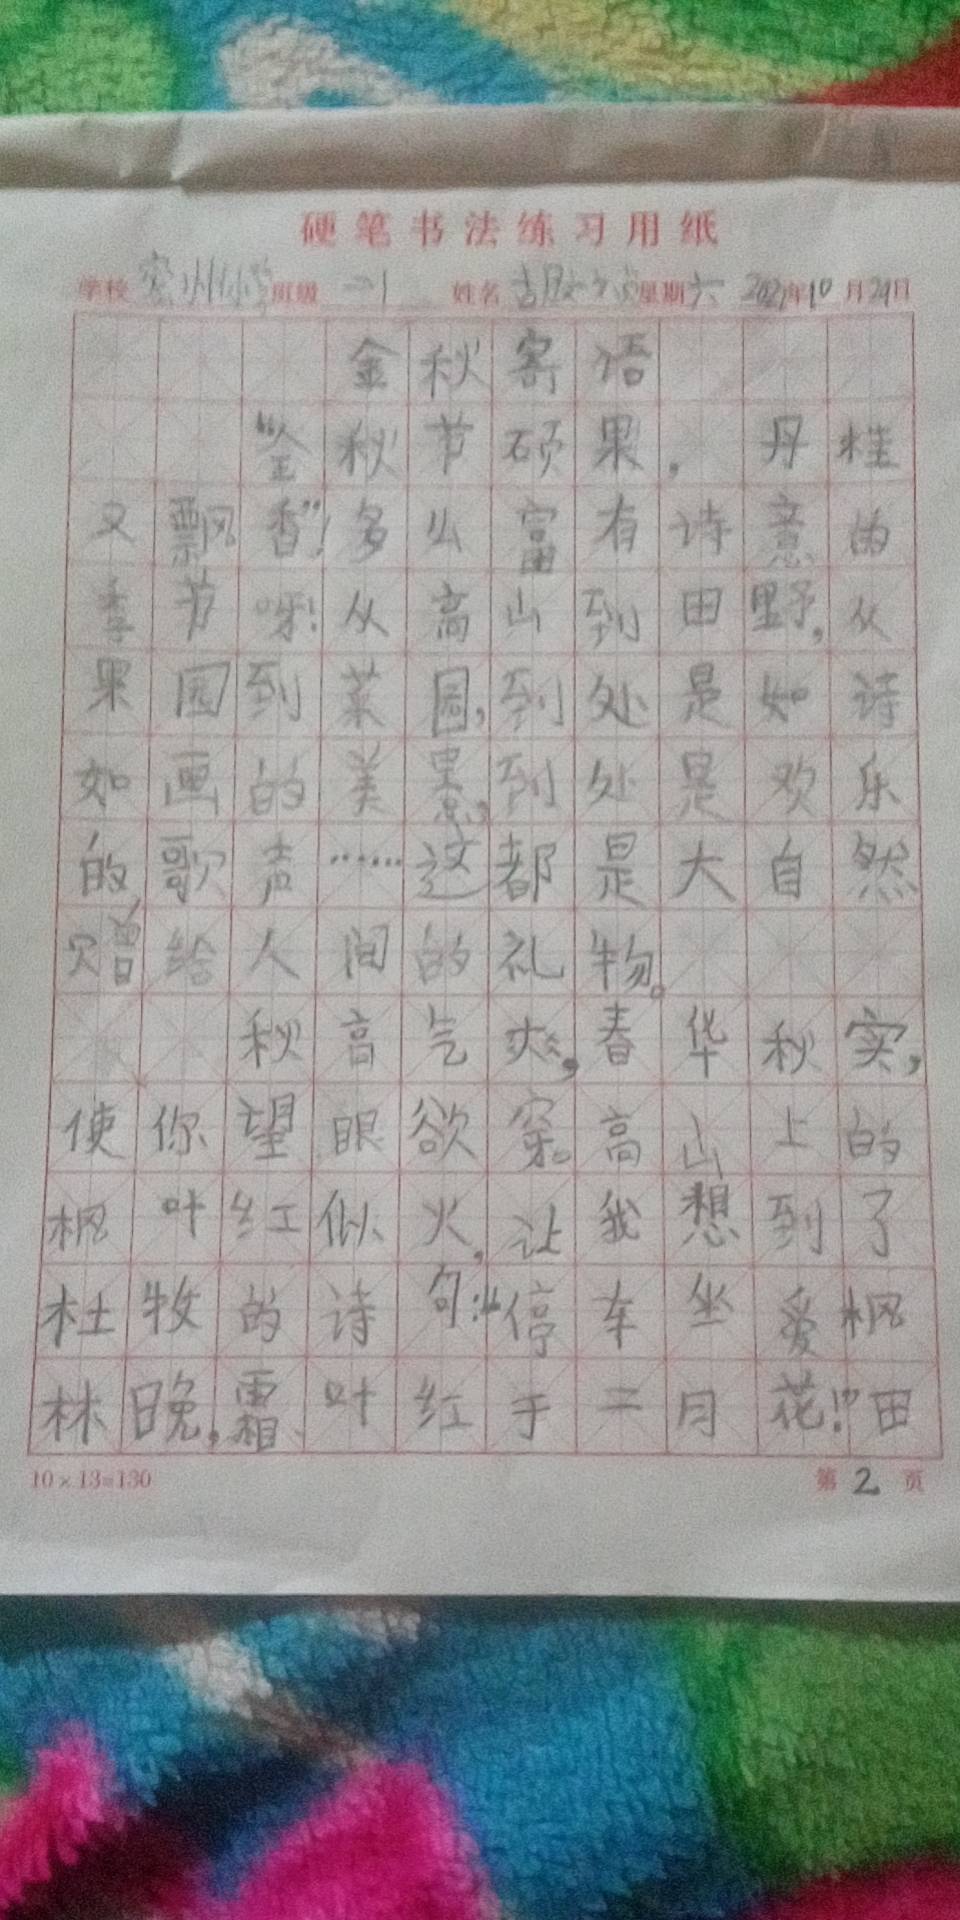 硬笔书法练习用纸
学校 密州小学 班级 二.1 姓名 星期六 2021年10月29日
金秋寄语
“金秋节硕果，丹桂
又飘香”！多么富有诗意的
季节呀！从高山到田野，从
果园到菜园，到处是如诗
如画的美景，到处是欢乐
的歌声……这都是大自然
赠给人间的礼物。
秋高气爽，春华秋实，
使你望眼欲穿。高山上的
枫叶红似火，让我想到了
杜牧的诗句：“停车坐爱枫
林晚，霜叶红于二月花！”田
10×13=130 第2页